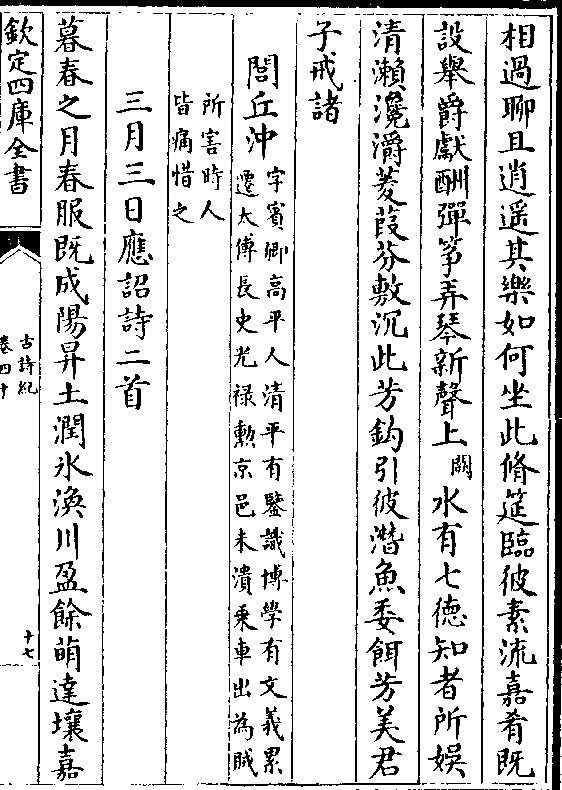 相過聊且逍遥其樂如何坐此脩筵臨彼素流嘉肴既
設舉爵獻酬彈筝弄琴新聲上闕水有七德知者所娛
清瀨瀺灂菱葭芬敷沉此芳鈎引彼潛魚委餌芳美君
子戒諸
閭丘沖
字賓卿高平人清平有鑒識博學有文義累
遷太傅長史光禄勲京邑未潰乗車出為賊
所害時人
皆痛惜之
三月三日應詔詩二首
暮春之月春服既成陽昇土潤氷渙川盈餘萌達壤嘉
欽定四庫全書
古詩紀
卷四十
十七